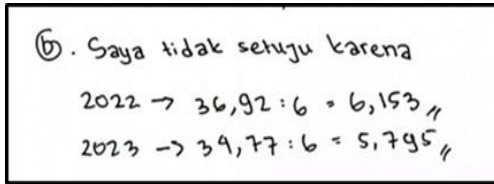 ⓑ. Saya tidak setuju karena
2022 → 36,92 : 6 = 6,153 //
2023 -> 34,77 : 6 = 5,795 //